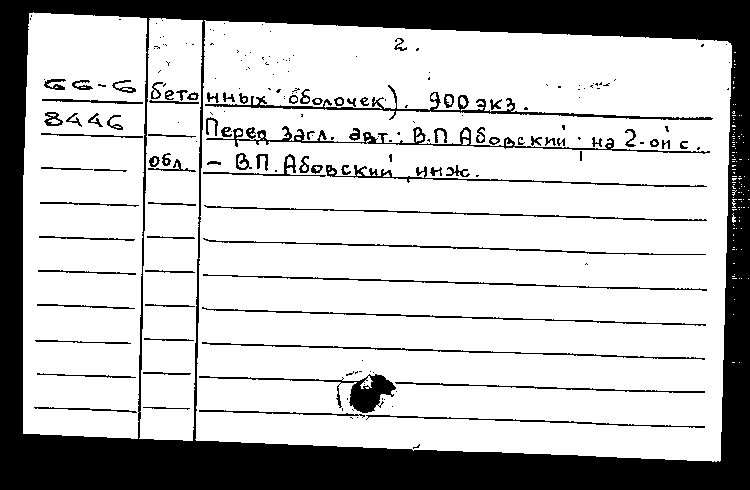 2.
66-6 бетонных оболочек). 900 экз.
8446 Перед загл. авт.: В.П. Абовский; на 2-ой с.
обл. – В.П. Абовский, инж.